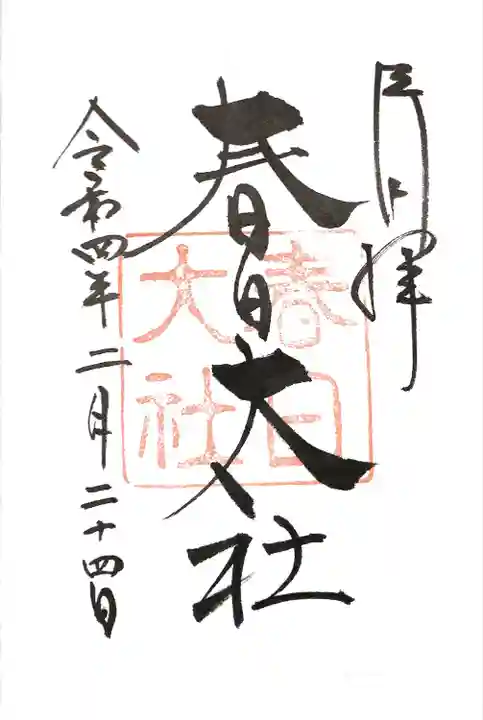 奉拝
春日大社
春日大社
令和四年二月二十四日